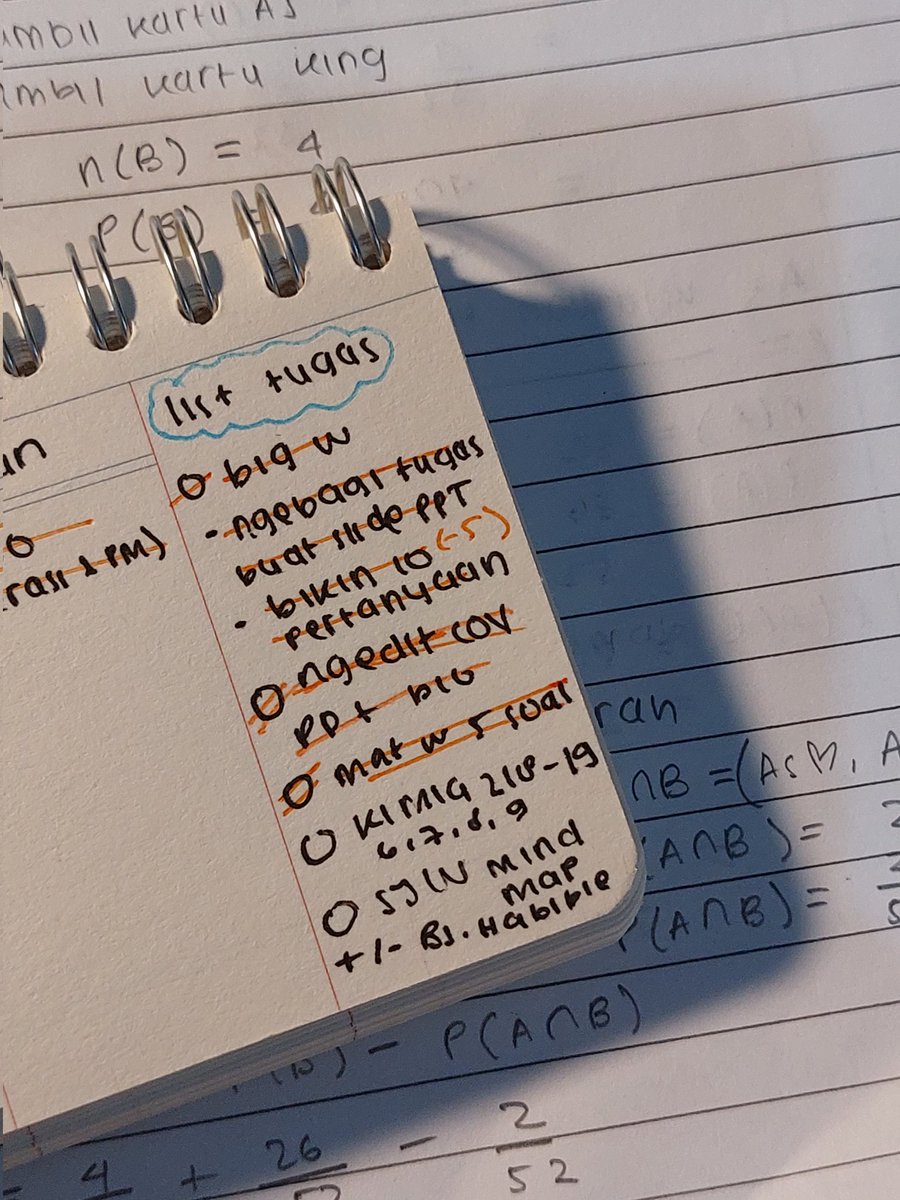 ambil kartu As
ambil kartu king
n(B) = 4
P(B) =
list tugas
big w
- ngebagi tugas
buat slide PPT
- bikin 10 (-5)
pertanyaan
ngedit cov
ppt big
mat w 5 soal
kimia 218-19
6.7.8.9
sjw mind
map
+/- BJ. Habibie
rasi 1 PM)
ran
∩B = (As♡, A
(A∩B) = 2
P(A∩B) =
- P(A∩B)
= 4 + 26 - 2
52 52